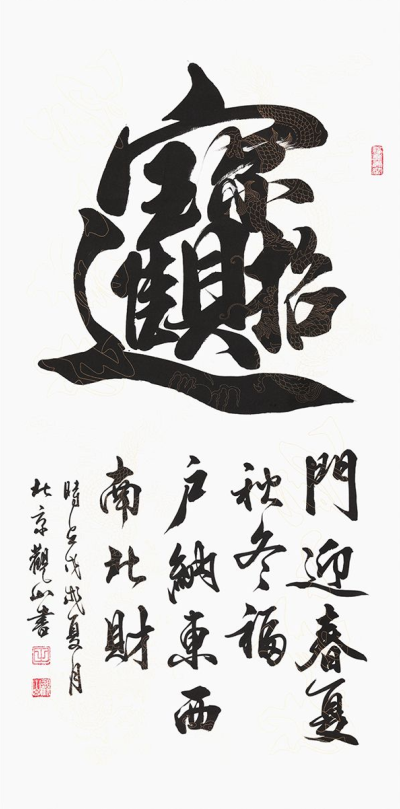 招財進寶
門迎春夏
秋冬福
户納東西
南北財
時在戊戌夏月
北京觀山書